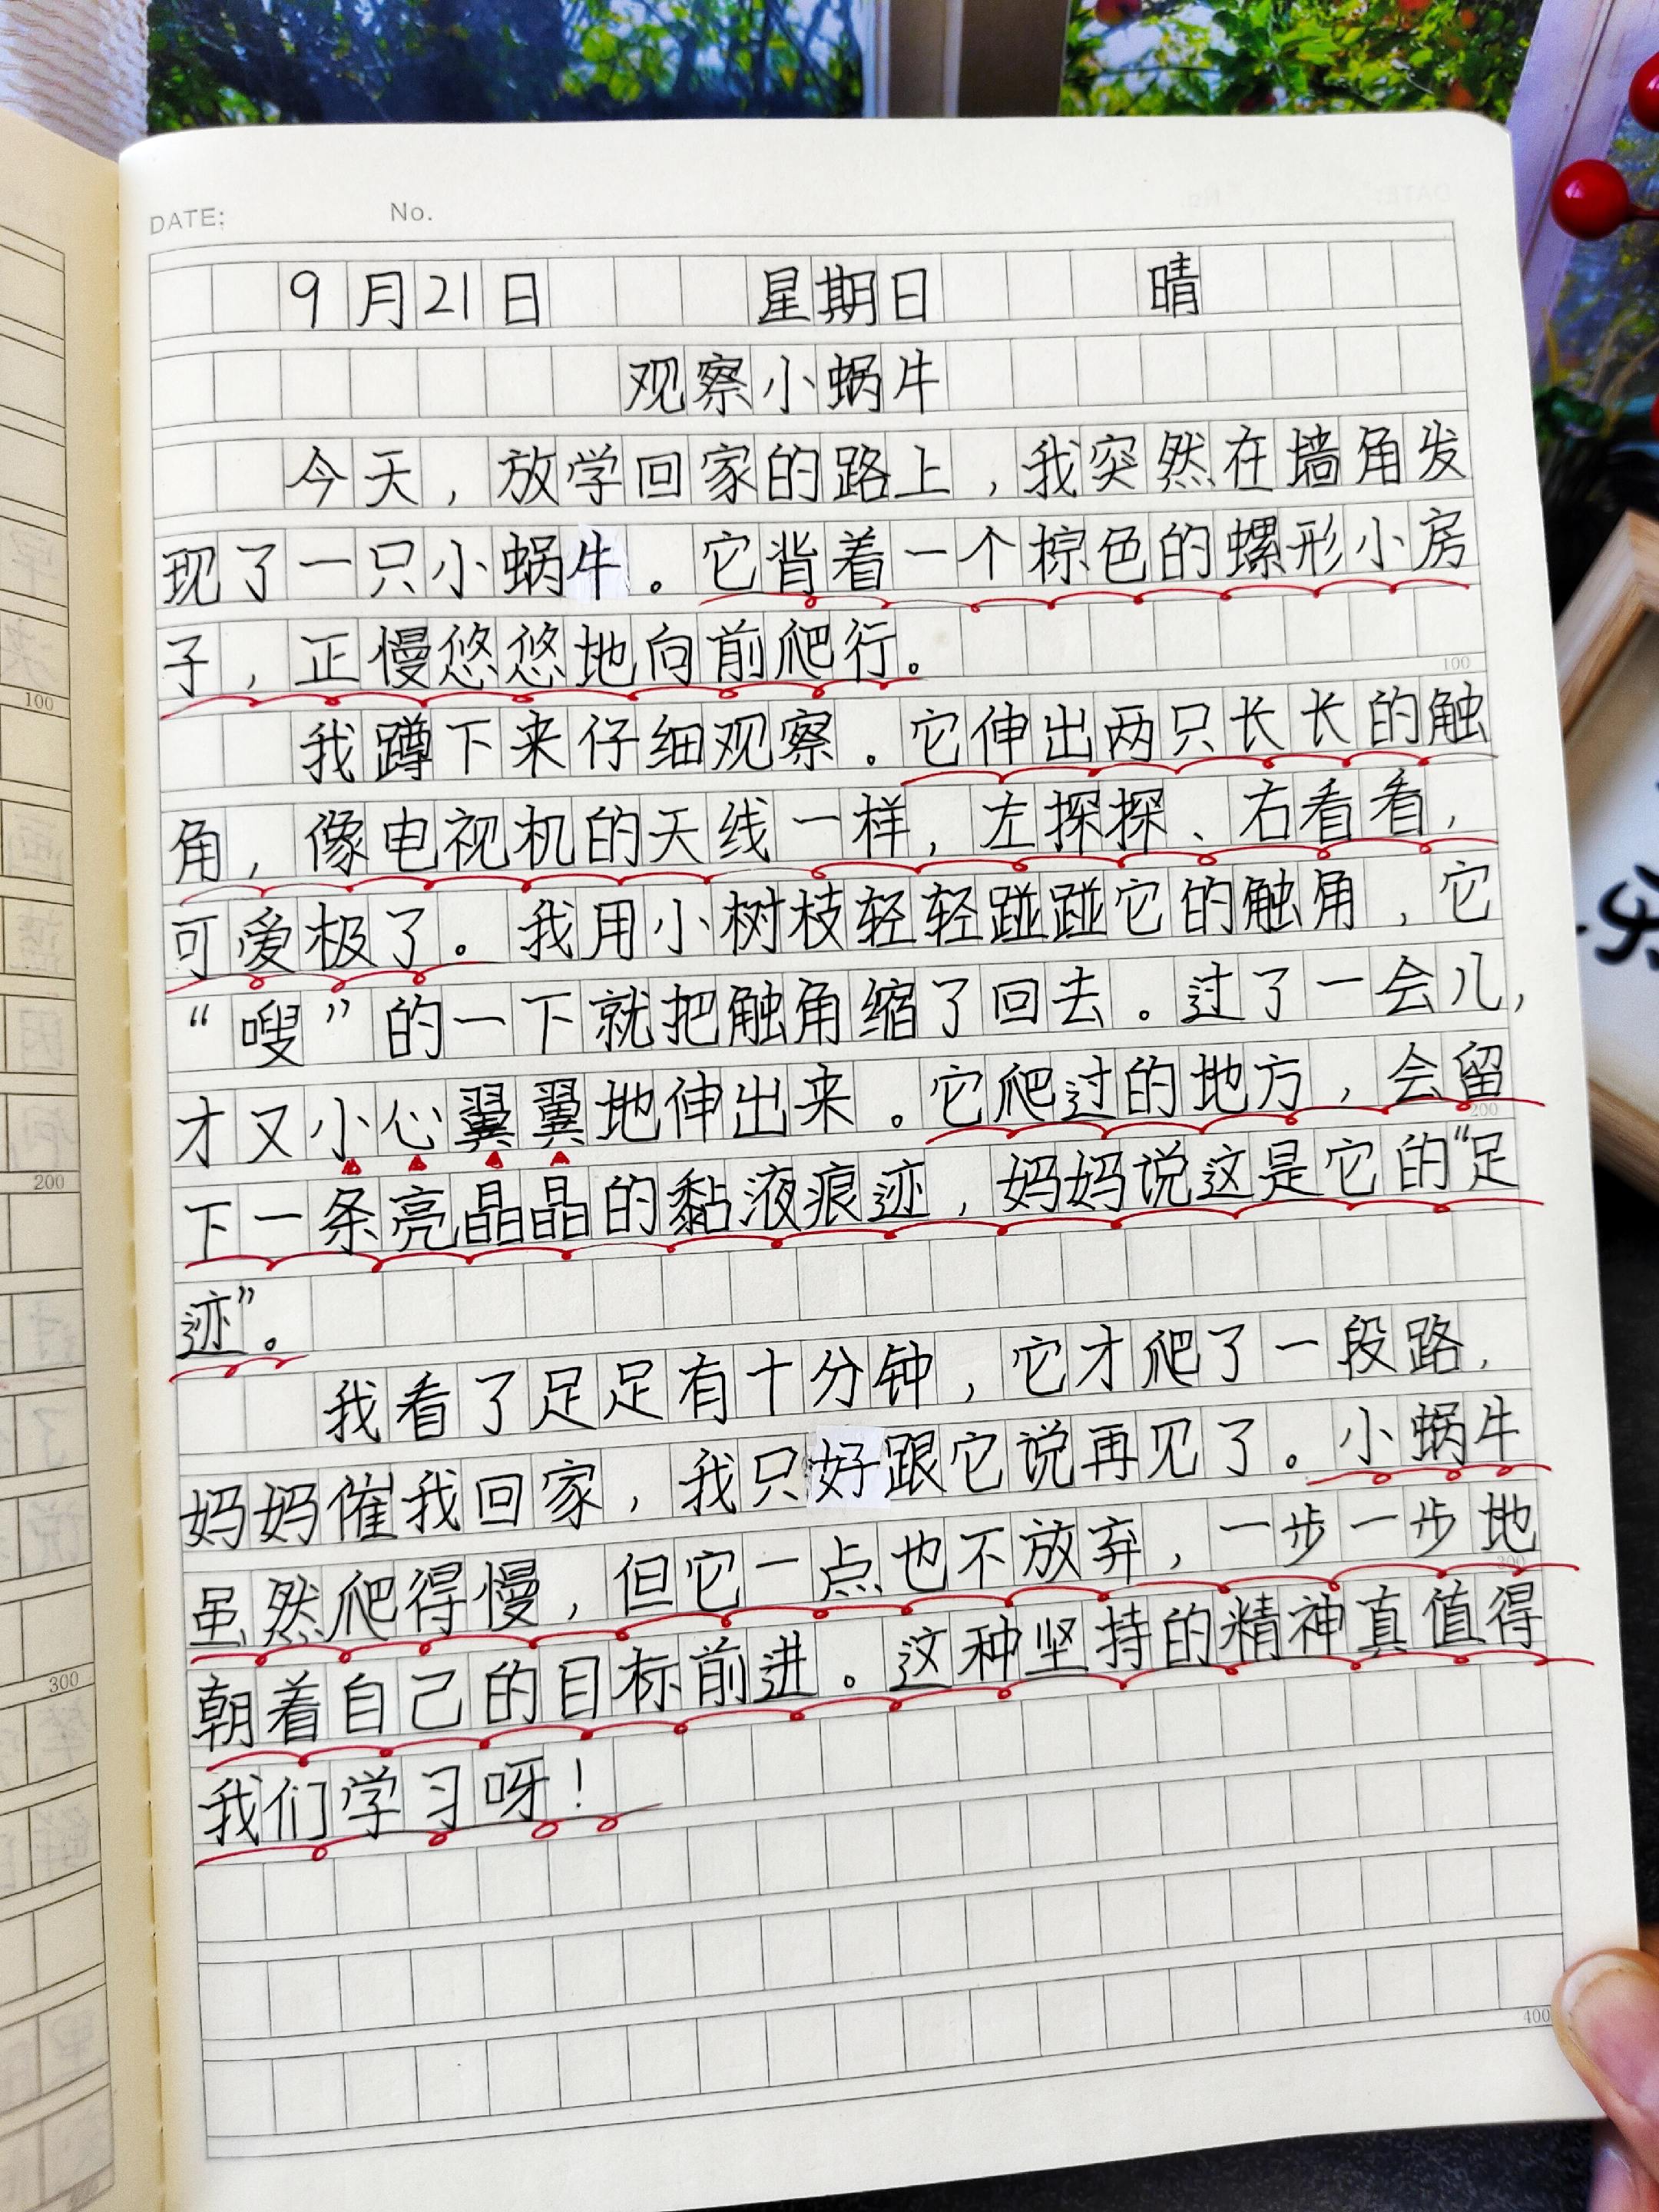 DATE: No.
9月21日 星期日 晴
观察小蜗牛
今天，放学回家的路上，我突然在墙角发
现了一只小蜗牛。它背着一个棕色的螺形小房
子，正慢悠悠地向前爬行。
100
我蹲下来仔细观察。它伸出两只长长的触
角，像电视机的天线一样，左探探、右看看，
可爱极了。我用小树枝轻轻碰碰它的触角，它
“嗖”的一下就把触角缩了回去。过了一会儿，
才又小心翼翼地伸出来。它爬过的地方，会留
200
下一条亮晶晶的黏液痕迹，妈妈说这是它的“足
迹”。
我看了足足有十分钟，它才爬了一段路，
妈妈催我回家，我只好跟它说再见了。小蜗牛
虽然爬得慢，但它一点也不放弃，一步一步地
300
朝着自己的目标前进。这种坚持的精神真值得
我们学习呀！
400
100
200
300